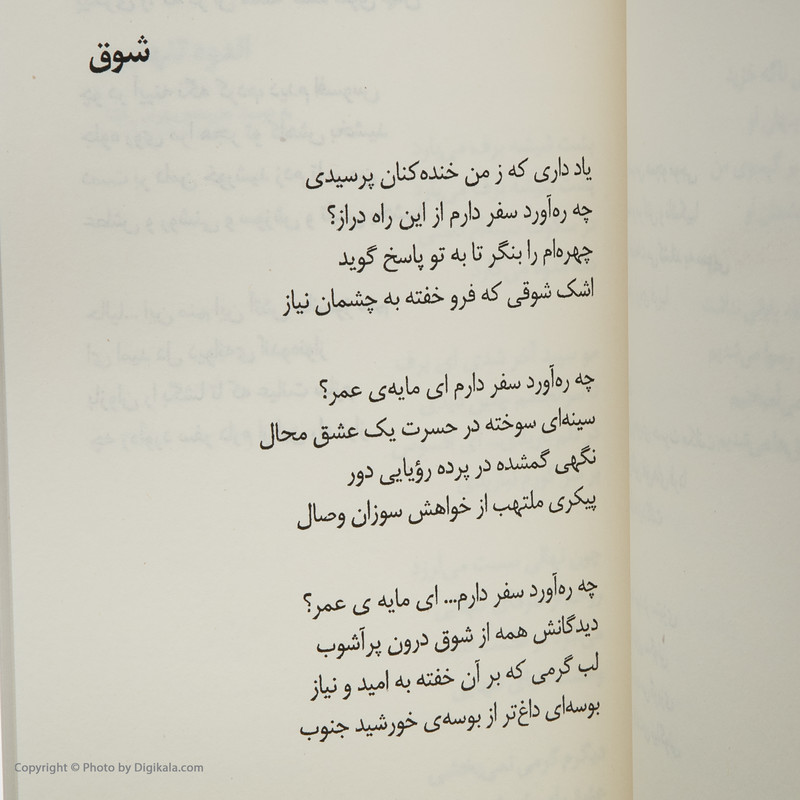 شوق
یاد داری که ز من خنده‌کنان پرسیدی
چه ره‌آورد سفر دارم از این راه دراز؟
چهره‌ام را بنگر تا به تو پاسخ گوید
اشک شوقی که فرو خفته به چشمان نیاز
چه ره‌آورد سفر دارم ای مایه‌ی عمر؟
سینه‌ای سوخته در حسرت یک عشق محال
نگهی گمشده در پرده رؤیایی دور
پیکری ملتهب از خواهش سوزان وصال
چه ره‌آورد سفر دارم... ای مایه ی عمر؟
دیدگانش همه از شوق درون پرآشوب
لب گرمی که بر آن خفته به امید و نیاز
بوسه‌ای داغ‌تر از بوسه‌ی خورشید جنوب
Copyright © Photo by Digikala.com